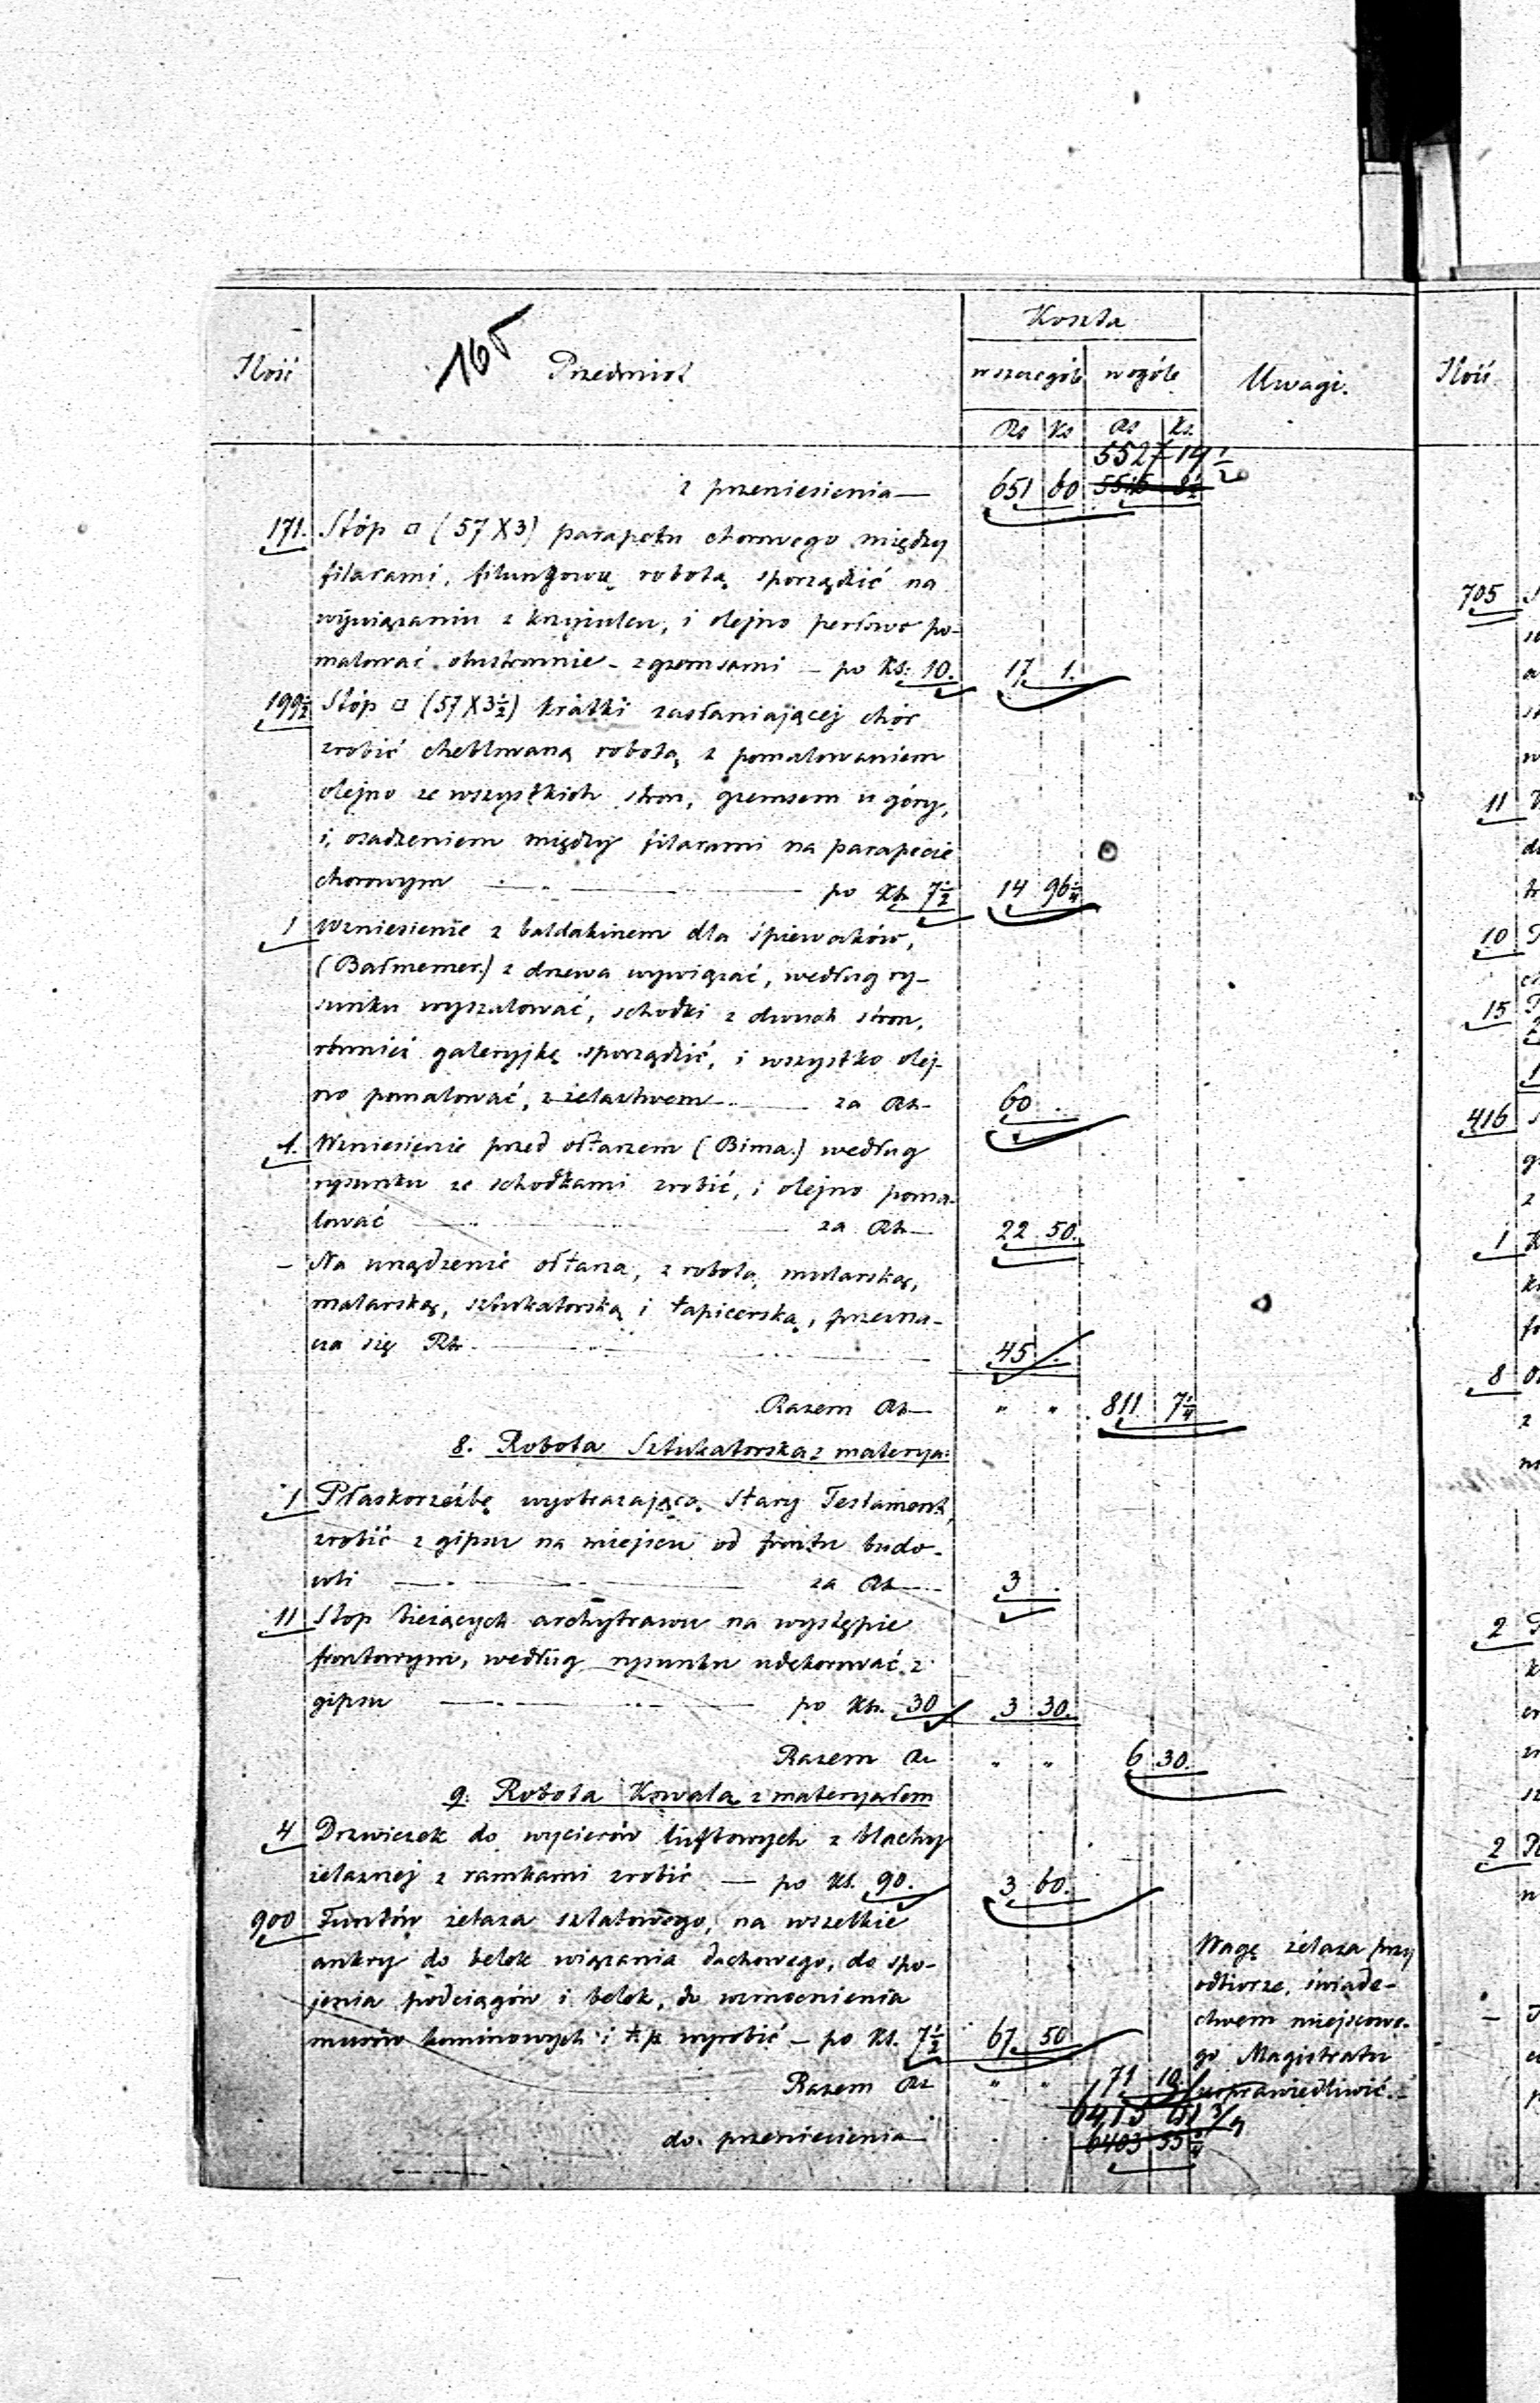 165
Ilość Przedmiot Koszta Uwagi.
w szczególe w ogóle
Rs Ks Rs Ks.
5527 14 1/2
z przeniesienia — 651 60
171. Stóp □ (57 X 3) parapetu chorowego między
filarami, filungową robotą sporządzić na
wywiązaniu z krzyżulcu, i olejno perłowo po-
malować obustronnie - z gzemsami — po Ks: 10. 17 1.
199½ Stóp □ (57 X 3½) kratki zasłaniającej chór
zrobić cheblowaną robotą, z pomalowaniem
olejno ze wszystkich stron, gzemsem u góry,
i, osadzeniem między filarami na parapecie
chorowym — po Ks. 7½ 14 96¼
1 Wzniesienie z baldakinem dla śpiewaków,
(Bałmemer.) z drzewa wywiązać, według ry-
sunku wyszalować, schodki z dwuch stron,
również galeryjkę sporządzić, i wszystko olej-
no pomalować, z żelastwem — za Rs — 60 .
1. Wzniesienie przed ołtarzem (Bima.) według
rysunku ze schodkami zrobić, i olejno poma-
lować — za Rs — 22 50.
— Na urządzenie ołtarza, z robotą mularską,
malarską, sztukatorską i tapicerską, przezna-
cza się Rs. — 45 .
Razem Rs — " " 811 7¼
8. Robota Sztukatorska z materya:
1 Płaskorzeźbę wyobrażającą Stary Testament,
zrobić z gipsu na miejscu od frontu budo-
wli — za Rs — 3 .
11 Stop bieżących architrawu na występie
frontowym, według rysunku udekorować z
gipsu — po Ks. 30 3 30.
Razem Rs " " 6 30.
9. Robota Kowala z materyałem
4 Drzwiczek do wycierów luftowych z blachy
żelaznej z ramkami zrobić — po Ks. 90. 3 60.
900 Funtów żelaza sztabowego, na wszelkie
ankry do belek wiązania dachowego, do spo-
jenia podciągów i belek, do wzmocnienia
murów kominowych i t. p. wyrobić — po Ks. 7½ 67 50
Wagę żelaza przy
odbiorze, świade-
ctwem miejscowe-
go Magistratu
usprawiedliwić. —
Razem Rs " " 71 10.
6415 61 3/4
do przeniesienia — 6403 55¾
Ilość
705
11
10
15
416
1
8
2
2
—